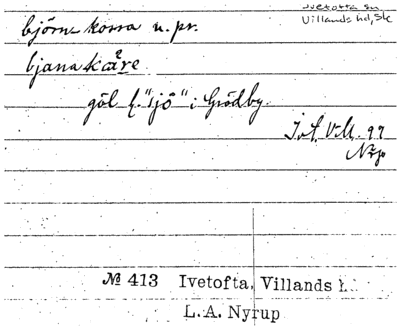 Ivetofta sn
Villands hd, Sk
björn-korra u. pr.
bjanakåre
göl l. "sjö" i Grödby.
99
№ 413 Ivetofta, Villands h.
L.A. Nyrup